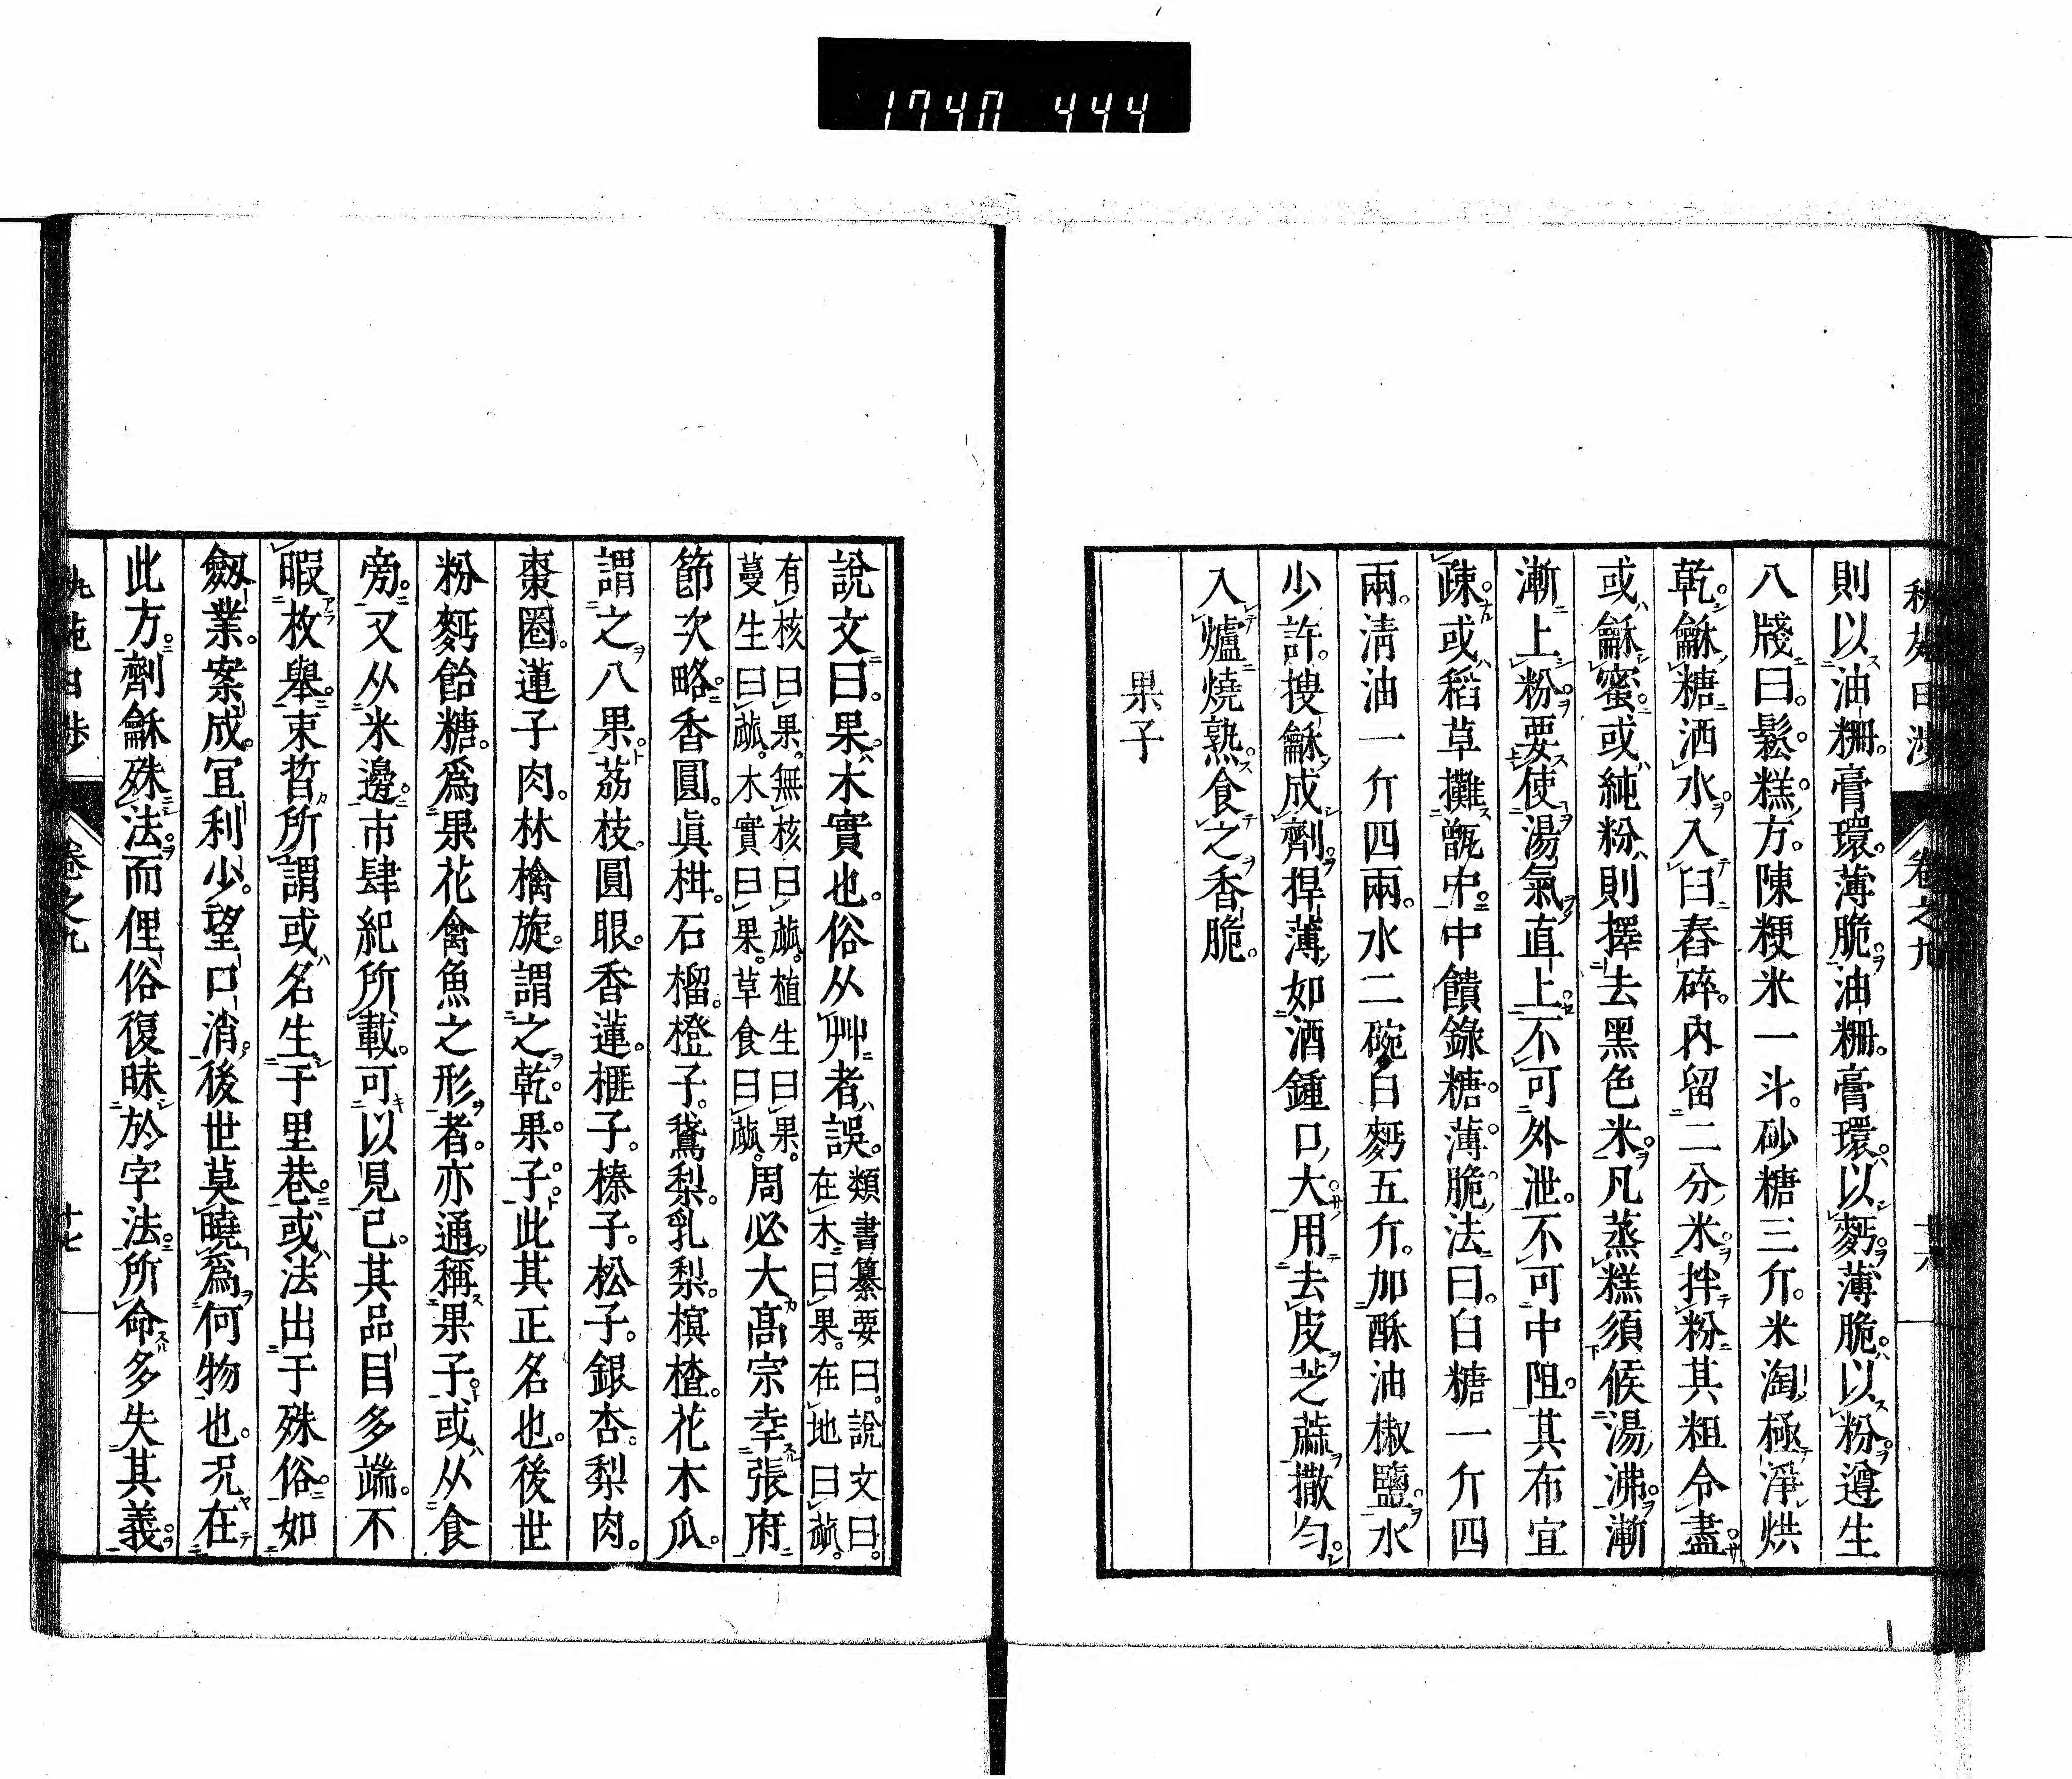 1740 444
則以油粣。膏環。薄脆。油粣。膏環。以麪。薄脆。以粉。遵生
八牋曰。鬆糕方。陳粳米一斗。砂糖三斤。米淘極淨烘
乾。龢糖洒水。入臼舂碎。內留二分米。拌粉其粗令盡。
或龢蜜。或純粉則擇去黑色米。凡蒸糕須候湯沸。漸
漸上粉。要使湯氣直上。不可外泄。不可中阻。其布宜
疎。或稻草攤甑中。中饋錄糖薄脆法曰。白糖一斤四
兩。淸油一斤四兩。水二碗。白麪五斤。加酥油椒鹽。水
少許。搜龢成劑。捍薄如酒鍾口大。用去皮芝蔴撒勻。
入爐燒熟。食之香脆。
果子
卷之九
說文曰。果。木實也。俗从艸者。誤。類書纂要曰。說文曰。
在木曰果。在地曰蓏。
有核曰果。無核曰蓏。植生曰果。
蔓生曰蓏。木實曰果。草食曰蓏。周必大高宗幸張府
節次略。香圓。眞柑。石榴。橙子。鵞梨。乳梨。榠楂。花木瓜。
謂之八果。荔枝。圓眼。香蓮。榧子。榛子。松子。銀杏。梨肉。
棗圈。蓮子肉。林檎旋。謂之乾果子。此其正名也。後世
粉麪飴糖。爲果花禽魚之形者。亦通稱果子。或从食
旁。又从米邊。市肆紀所載。可以見已。其品目多端。不
暇枚舉。束晳所謂或名生于里巷。或法出于殊俗。如
劔業。案成。冝利少。望口消。後世莫曉爲何物也。况在
此方。劑龢殊法。而俚俗復昧於字法。所命多失其義。
卷之九
廿七